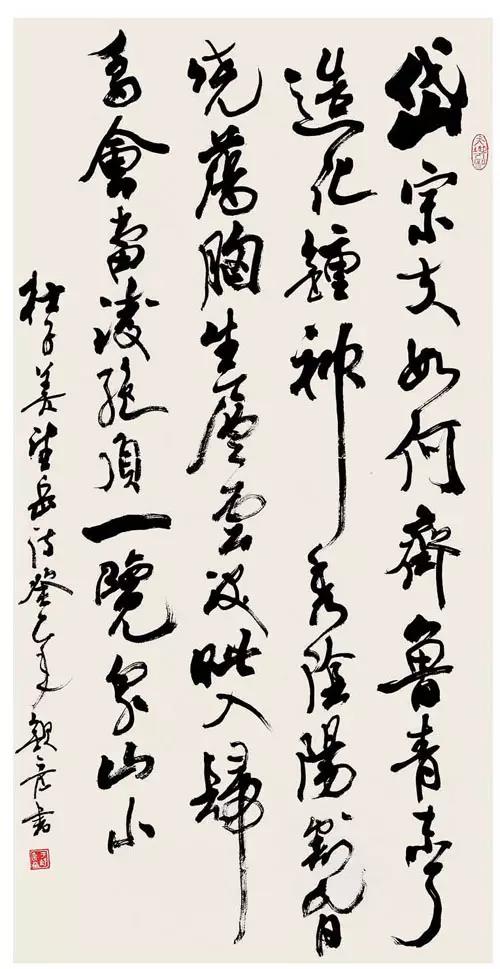 岱宗夫如何齊魯青未了
造化鍾神秀陰陽割昏
曉蕩胸生層雲決眥入歸
鳥會當凌絕頂一覽眾山小
杜子美望岳詩癸巳年書